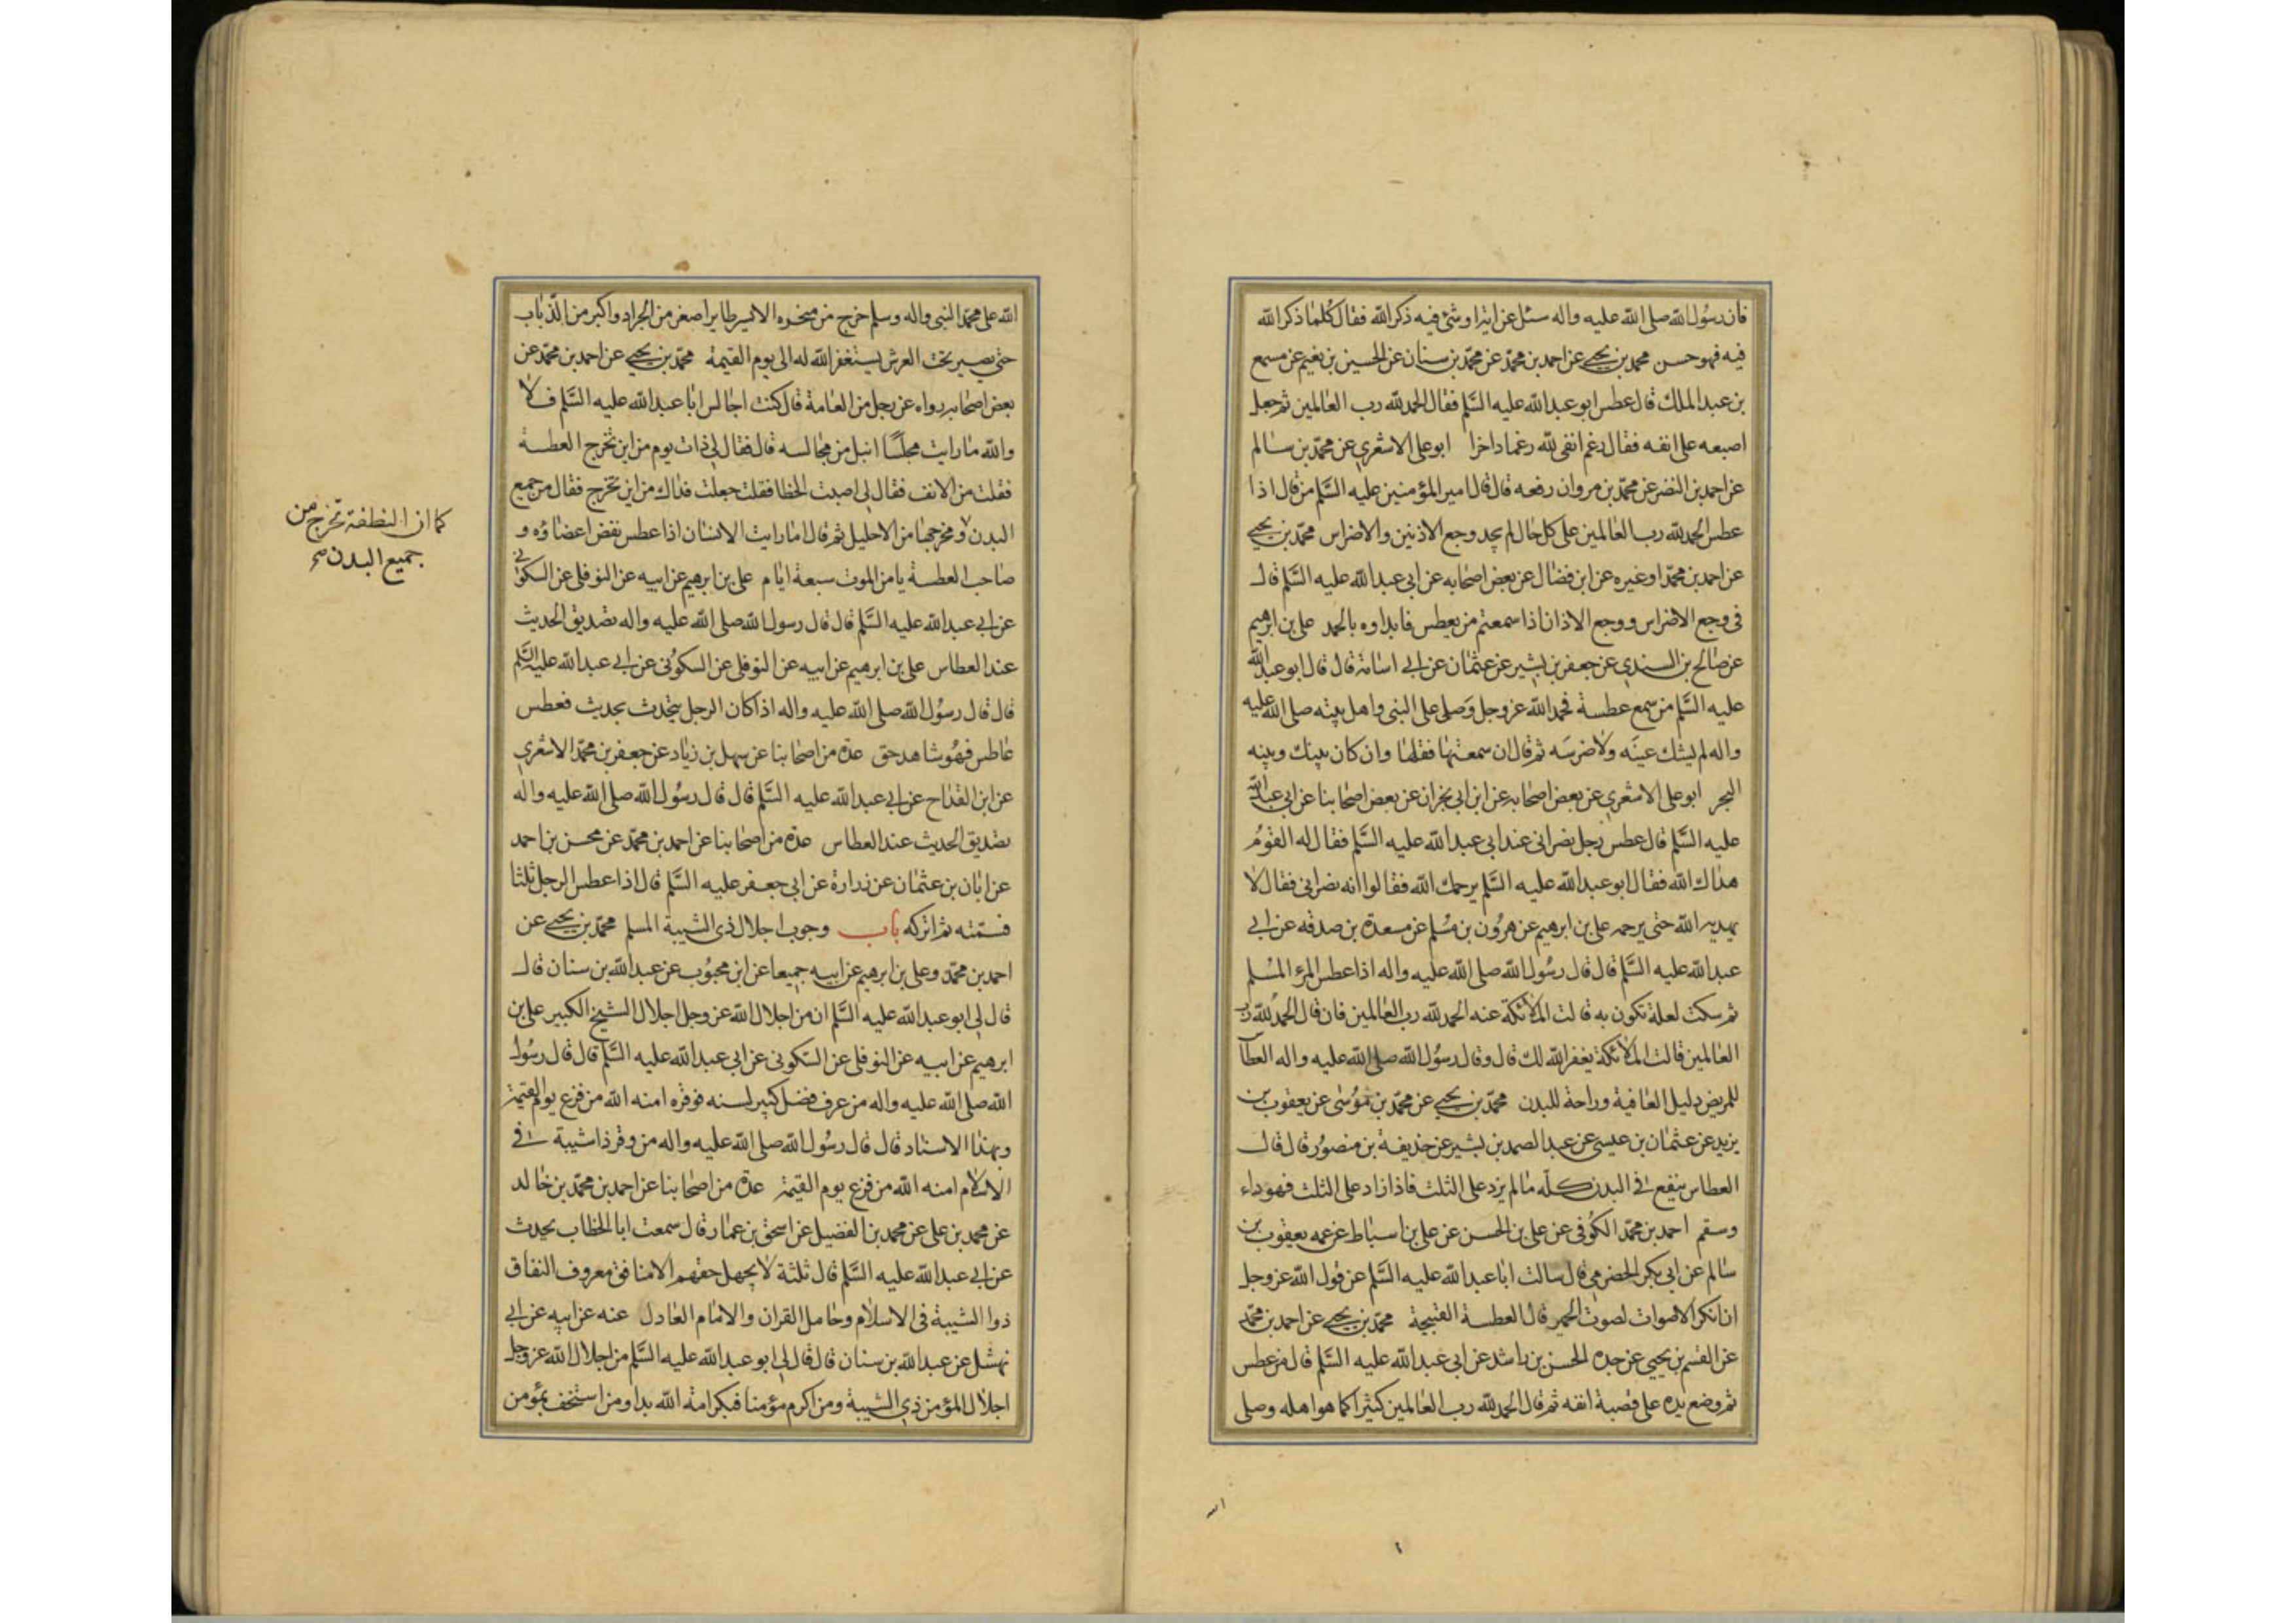 فان رسول الله صلى الله عليه واله سئل عن ايذاو شئ فيه ذكر الله فقال كلما ذكر الله
فيه فهو حسن محمد بن يحيى عن احمد بن محمد عن محمد بن سنان عن الحسين بن نعيم عن مسمع
بن عبد الملك قال عطس ابو عبد الله عليه السلم فقال الحمد لله رب العالمين ثم جعل
اصبعه على انفه فقال رغم انفى لله رغما داخرا ابو على الاشعرى عن محمد بن سالم
عن احمد بن النضر عن محمد بن مروان رفعه قال قال امير المؤمنين عليه السلم من قال اذا
عطس الحمد لله رب العالمين على كل حال لم يجد وجع الاذنين والاضراس محمد بن يحيى
عن احمد بن محمد او غيره عن ابن فضال عن بعض اصحابه عن ابى عبد الله عليه السلم قال
فى وجع الاضراس ووجع الاذان اذا سمعتم من يعطس فابداوه بالحمد على بن ابرهيم
عن صالح بن السندى عن جعفر بن بشير عن عثمان عن ابى اسامة قال قال ابو عبد الله
عليه السلم من سمع عطسة فحمد الله عز وجل وصلى على النبى واهل بيته صلى الله عليه
واله لم يشتك عينه ولا ضرسه ثم قال ان سمعتها فقلها وان كان بينك وبينه
البحر ابو على الاشعرى عن بعض اصحابه عن ابن ابى نجران عن بعض اصحابنا عن ابى عبد الله
عليه السلم قال عطس رجل نصرانى عند ابى عبد الله عليه السلم فقال له القوم
هداك الله فقال ابو عبد الله عليه السلم يرحمك الله فقالوا انه نصرانى فقال لا
يهديه الله حتى يرحمه على بن ابرهيم عن هرون بن مسلم عن مسعدة بن صدقه عن ابى
عبد الله عليه السلم قال قال رسول الله صلى الله عليه واله اذا عطس المرء المسلم
ثم سكت لعلة تكون به قالت الملائكة عنه الحمد لله رب العالمين فان قال الحمد لله رب
العالمين قالت الملائكة يغفر الله لك قال وقال رسول الله صلى الله عليه واله العطا
للمريض دليل العافية وراحة للبدن محمد بن يحيى عن محمد بن موسى عن يعقوب بن
يزيد عن عثمان بن عيسى عن عبد الصمد بن بشير عن حذيفة بن منصور قال قال
العطاس ينفع فى البدن كله ما لم يزد على الثلث فاذا زاد على الثلث فهو داء
وسقم احمد بن محمد الكوفى عن على بن الحسن عن على بن اسباط عن عمه يعقوب بن
سالم عن ابى بكر الحضرمى قال سالت ابا عبد الله عليه السلم عن قول الله عز وجل
ان انكر الاصوات لصوت الحمير قال العطسة القبيحة محمد بن يحيى عن احمد بن محمد
عن القسم بن يحيى عن جده الحسن بن راشد عن ابى عبد الله عليه السلم قال من عطس
ثم وضع يده على قصبة انفه ثم قال الحمد لله رب العالمين كثيرا كما هو اهله وصلى
الله على محمد النبى واله وسلم خرج من منخره الايسر طاير اصغر من الجراد واكبر من الذباب
حتى يصير تحت العرش يستغفر الله له الى يوم القيمة محمد بن يحيى عن احمد بن محمد عن
بعض اصحابه رواه عن رجل من العامة قال كنت اجالس ابا عبد الله عليه السلم فلا
والله ما رايت مجلسا انبل من مجالسه قال فقال لى ذات يوم من اين تخرج العطسة
فقلت من الانف فقال لى اصبت الخطا فقلت جعلت فداك من اين تخرج فقال من جميع
البدن و مخرجها من الاحليل ثم قال اما رايت الانسان اذا عطس نفض اعضاؤه و
كما ان النطفة تخرج من
جميع البدن صح
صاحب العطسة يامن الموت سبعة ايام على بن ابرهيم عن ابيه عن النوفلى عن السكونى
عن ابى عبد الله عليه السلم قال قال رسول الله صلى الله عليه واله تصديق الحديث
عند العطاس على بن ابرهيم عن ابيه عن النوفلى عن السكونى عن ابى عبد الله عليه السلم
قال قال رسول الله صلى الله عليه واله اذا كان الرجل يتحدث بحديث فعطس
عاطس فهو شاهد حق عدة من اصحابنا عن سهل بن زياد عن جعفر بن محمد الاشعرى
عن ابن القداح عن ابى عبد الله عليه السلم قال قال رسول الله صلى الله عليه واله
تصديق الحديث عند العطاس عدة من اصحابنا عن احمد بن محمد عن محسن بن احمد
عن ابان بن عثمان عن زرارة عن ابى جعفر عليه السلم قال اذا عطس الرجل ثلثا
فسمته ثم اتركه باب وجوب اجلال ذى الشيبة المسلم محمد بن يحيى عن
احمد بن محمد وعلى بن ابرهيم عن ابيه جميعا عن ابن محبوب عن عبد الله بن سنان قال
قال لى ابو عبد الله عليه السلم ان من اجلال الله عز وجل اجلال الشيخ الكبير على بن
ابرهيم عن ابيه عن النوفلى عن السكونى عن ابى عبد الله عليه السلم قال قال رسول
الله صلى الله عليه واله من عرف فضل كبير لسنه فوقره امنه الله من فزع يوم القيمة
وبهذا الاسناد قال قال رسول الله صلى الله عليه واله من وقر ذا شيبة فى
الاسلام امنه الله من فزع يوم القيمة عدة من اصحابنا عن احمد بن محمد بن خالد
عن محمد بن على عن محمد بن الفضيل عن اسحق بن عمار قال سمعت ابا الخطاب يحدث
عن ابى عبد الله عليه السلم قال ثلثة لا يجهل حقهم الا منافق معروف النفاق
ذوا الشيبة فى الاسلام وحامل القران والامام العادل عنه عن ابيه عن ابى
نهشل عن عبد الله بن سنان قال قال لى ابو عبد الله عليه السلم من اجلال الله عز وجل
اجلال المؤمن ذى الشيبة ومن اكرم مؤمنا فبكرامة الله بدا ومن استخف بمؤمن